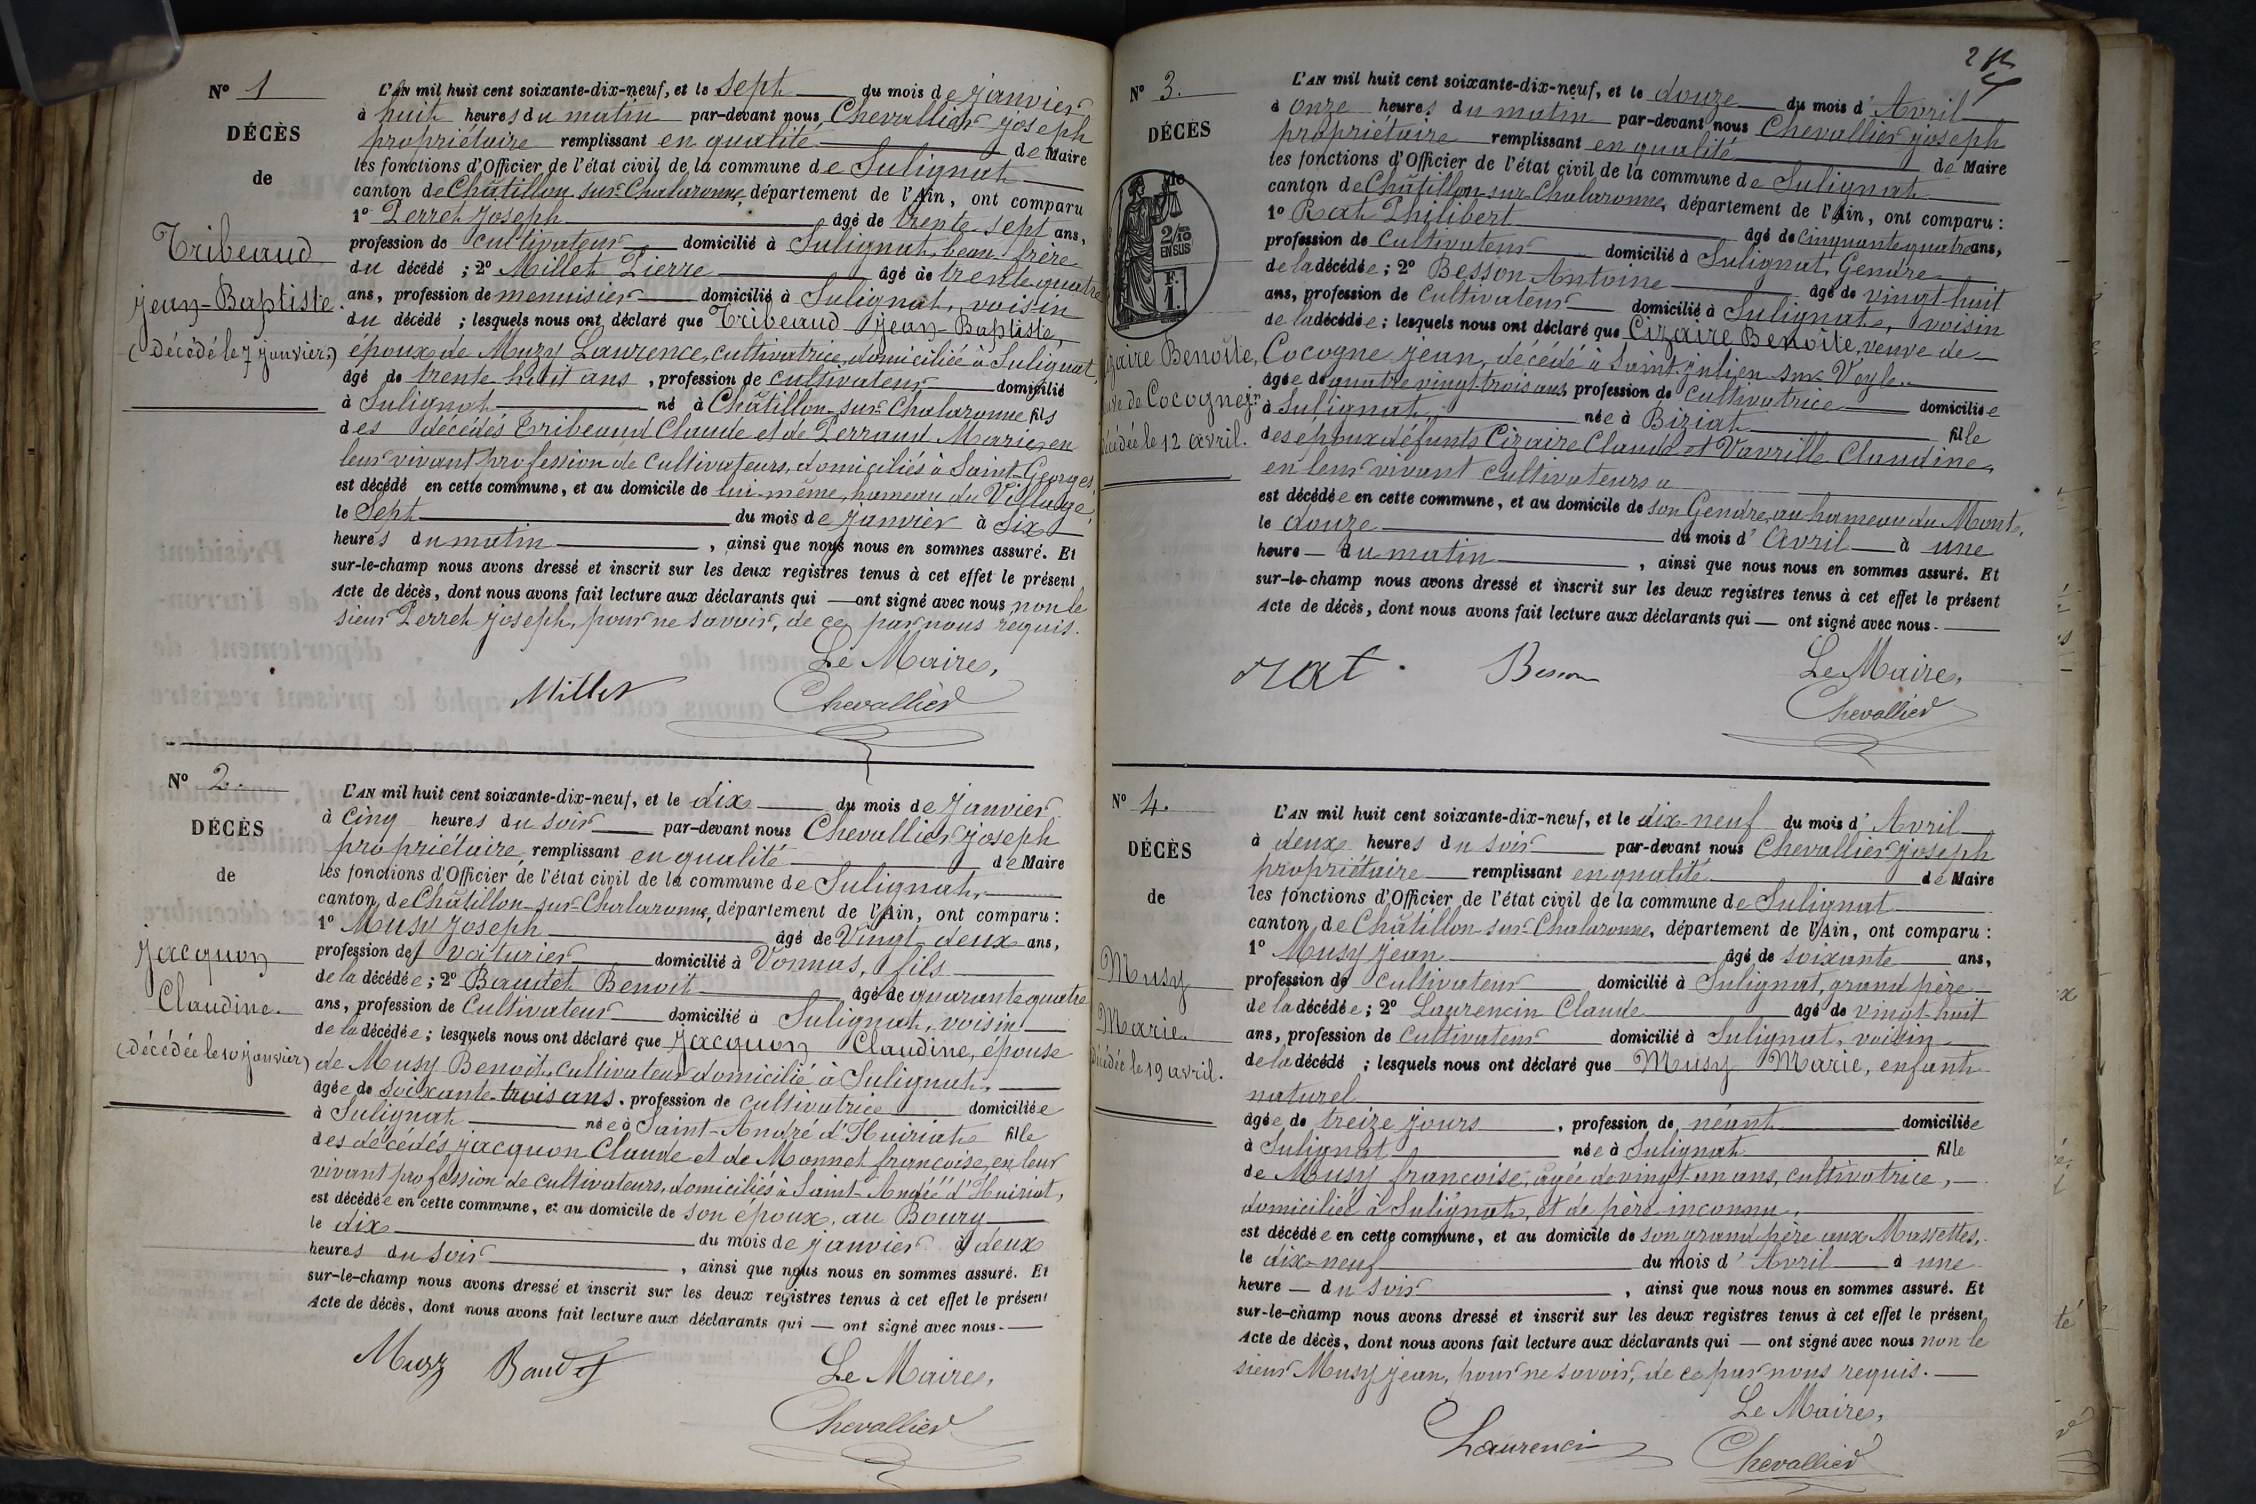 N° 1
DÉCÈS
de
Tribeaud
jean-Baptiste.
(décédé le 7 janvier)
L'AN mil huit cent soixante-dix-neuf, et le sept du mois de janvier
à huit heures du matin par-devant nous Chevallier joseph
propriétaire remplissant en qualité de Maire
les fonctions d'Officier de l'état civil de la commune de Sulignat
canton de Châtillon-sur-Chalaronne, département de l'Ain, ont comparu
1° Perret joseph âgé de trente sept ans,
profession de cultivateur domicilié à Sulignat, beau frère
du décédé ; 2° Millet Pierre âgé de trente quatre
ans, profession de menuisier domicilié à Sulignat, voisin
du décédé ; lesquels nous ont déclaré que Tribeaud jean-Baptiste,
époux de Muzy Laurence, cultivatrice, domiciliée à Sulignat,
âgé de trente huit ans, profession de cultivateur domicilié
à Sulignat né à Châtillon-sur-Chalaronne fils
des décédés Tribeaud Claude et de Perraud Marie, en
leur vivant profession de cultivateurs, domiciliés à Saint-Georges,
est décédé en cette commune, et au domicile de lui-même, hameau du Village,
le Sept du mois de janvier à six
heures du matin, ainsi que nous nous en sommes assuré. Et
sur-le-champ nous avons dressé et inscrit sur les deux registres tenus à cet effet le présent
Acte de décès, dont nous avons fait lecture aux déclarants qui ont signé avec nous, non le
sieur Perret joseph, pour ne savoir, de ce par nous requis.
Le Maire,
Millet Chevallier
N° 2.
DÉCÈS
de
jacquon
Claudine.
(décédée le 10 janvier)
L'AN mil huit cent soixante-dix-neuf, et le dix du mois de janvier
à cinq heures du soir par-devant nous Chevallier joseph
propriétaire remplissant en qualité de Maire
les fonctions d'Officier de l'état civil de la commune de Sulignat,
canton de Châtillon-sur-Chalaronne, département de l'Ain, ont comparu :
1° Musy joseph âgé de Vingt-deux ans,
profession de voiturier domicilié à Vonnas, fils
de la décédée ; 2° Baudet Benoit âgé de quarante quatre
ans, profession de Cultivateur domicilié à Sulignat, voisin
de la décédée ; lesquels nous ont déclaré que jacquon Claudine, épouse
de Musy Benoit, cultivateur domicilié à Sulignat,
âgée de soixante-trois ans, profession de cultivatrice domiciliée
à Sulignat née à Saint-André d'Huiriat fille
des décédés jacquon Claude et de Monnet françoise, en leur
vivant profession de cultivateurs, domiciliés à Saint-André d'Huiriat,
est décédée en cette commune, et au domicile de son époux, au Bourg
le dix du mois de janvier à deux
heures du soir, ainsi que nous nous en sommes assuré. Et
sur-le-champ nous avons dressé et inscrit sur les deux registres tenus à cet effet le présent
Acte de décès, dont nous avons fait lecture aux déclarants qui — ont signé avec nous.
Le Maire,
Musy Baudet Chevallier
N° 3.
DÉCÈS
de
2/10
EN SUS
F.
1.
zaire Benoîte,
de Cocogne j.n
décédée le 12 avril.
L'AN mil huit cent soixante-dix-neuf, et le douze du mois d'Avril
à onze heures du matin par-devant nous Chevallier joseph
propriétaire remplissant en qualité de Maire
les fonctions d'Officier de l'état civil de la commune de Sulignat
canton de Châtillon-sur-Chalaronne, département de l'Ain, ont comparu :
1° Rat Philibert âgé de cinquante quatre ans,
profession de Cultivateur domicilié à Sulignat, Gendre
de la décédée ; 2° Besson Antoine âgé de vingt-huit
ans, profession de Cultivateur domicilié à Sulignat, voisin
de la décédée ; lesquels nous ont déclaré que Cizaire Benoîte, veuve de
Cocogne jean, décédé à Saint-julien sur Veyle.
âgée de quatre vingt-trois ans, profession de cultivatrice domiciliée
à Sulignat, née à Biziat fille
des époux défunts Cizaire Claude et Vavrille Claudine,
en leur vivant cultivateurs a
est décédée en cette commune, et au domicile de son Gendre, au hameau du Mont,
le douze du mois d'Avril à une
heure — du matin, ainsi que nous nous en sommes assuré. Et
sur-le-champ nous avons dressé et inscrit sur les deux registres tenus à cet effet le présent
Acte de décès, dont nous avons fait lecture aux déclarants qui — ont signé avec nous.
Le Maire,
rat. Besson Chevallier
N° 4.
DÉCÈS
de
Musy
Marie.
décédée le 19 avril.
L'AN mil huit cent soixante-dix-neuf, et le dix-neuf du mois d'Avril
à deux heures du soir par-devant nous Chevallier joseph
propriétaire remplissant en qualité de Maire
les fonctions d'Officier de l'état civil de la commune de Sulignat
canton de Châtillon-sur-Chalaronne, département de l'Ain, ont comparu :
1° Musy jean âgé de soixante ans,
profession de cultivateur domicilié à Sulignat, grand père
de la décédée ; 2° Laurencin Claude âgé de vingt-huit
ans, profession de cultivateur domicilié à Sulignat, voisin
de la décédé ; lesquels nous ont déclaré que Musy Marie, enfant
naturel
âgée de treize jours, profession de néant domiciliée
à Sulignat née à Sulignat fille
de Musy françoise, agée de vingt-un ans, cultivatrice,
domiciliée à Sulignat, et de père inconnu,
est décédée en cette commune, et au domicile de son grand père aux Massettes,
le dix-neuf du mois d'Avril à une
heure — du soir, ainsi que nous nous en sommes assuré. Et
sur-le-champ nous avons dressé et inscrit sur les deux registres tenus à cet effet le présent
Acte de décès, dont nous avons fait lecture aux déclarants qui — ont signé avec nous non le
sieur Musy jean, pour ne savoir, de ce par nous requis.
Le Maire,
Laurencin Chevallier